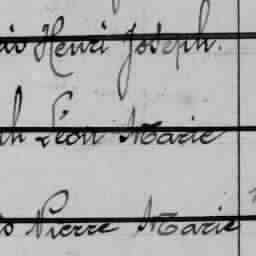 Henri Joseph.
Léon Marie
Pierre Marie